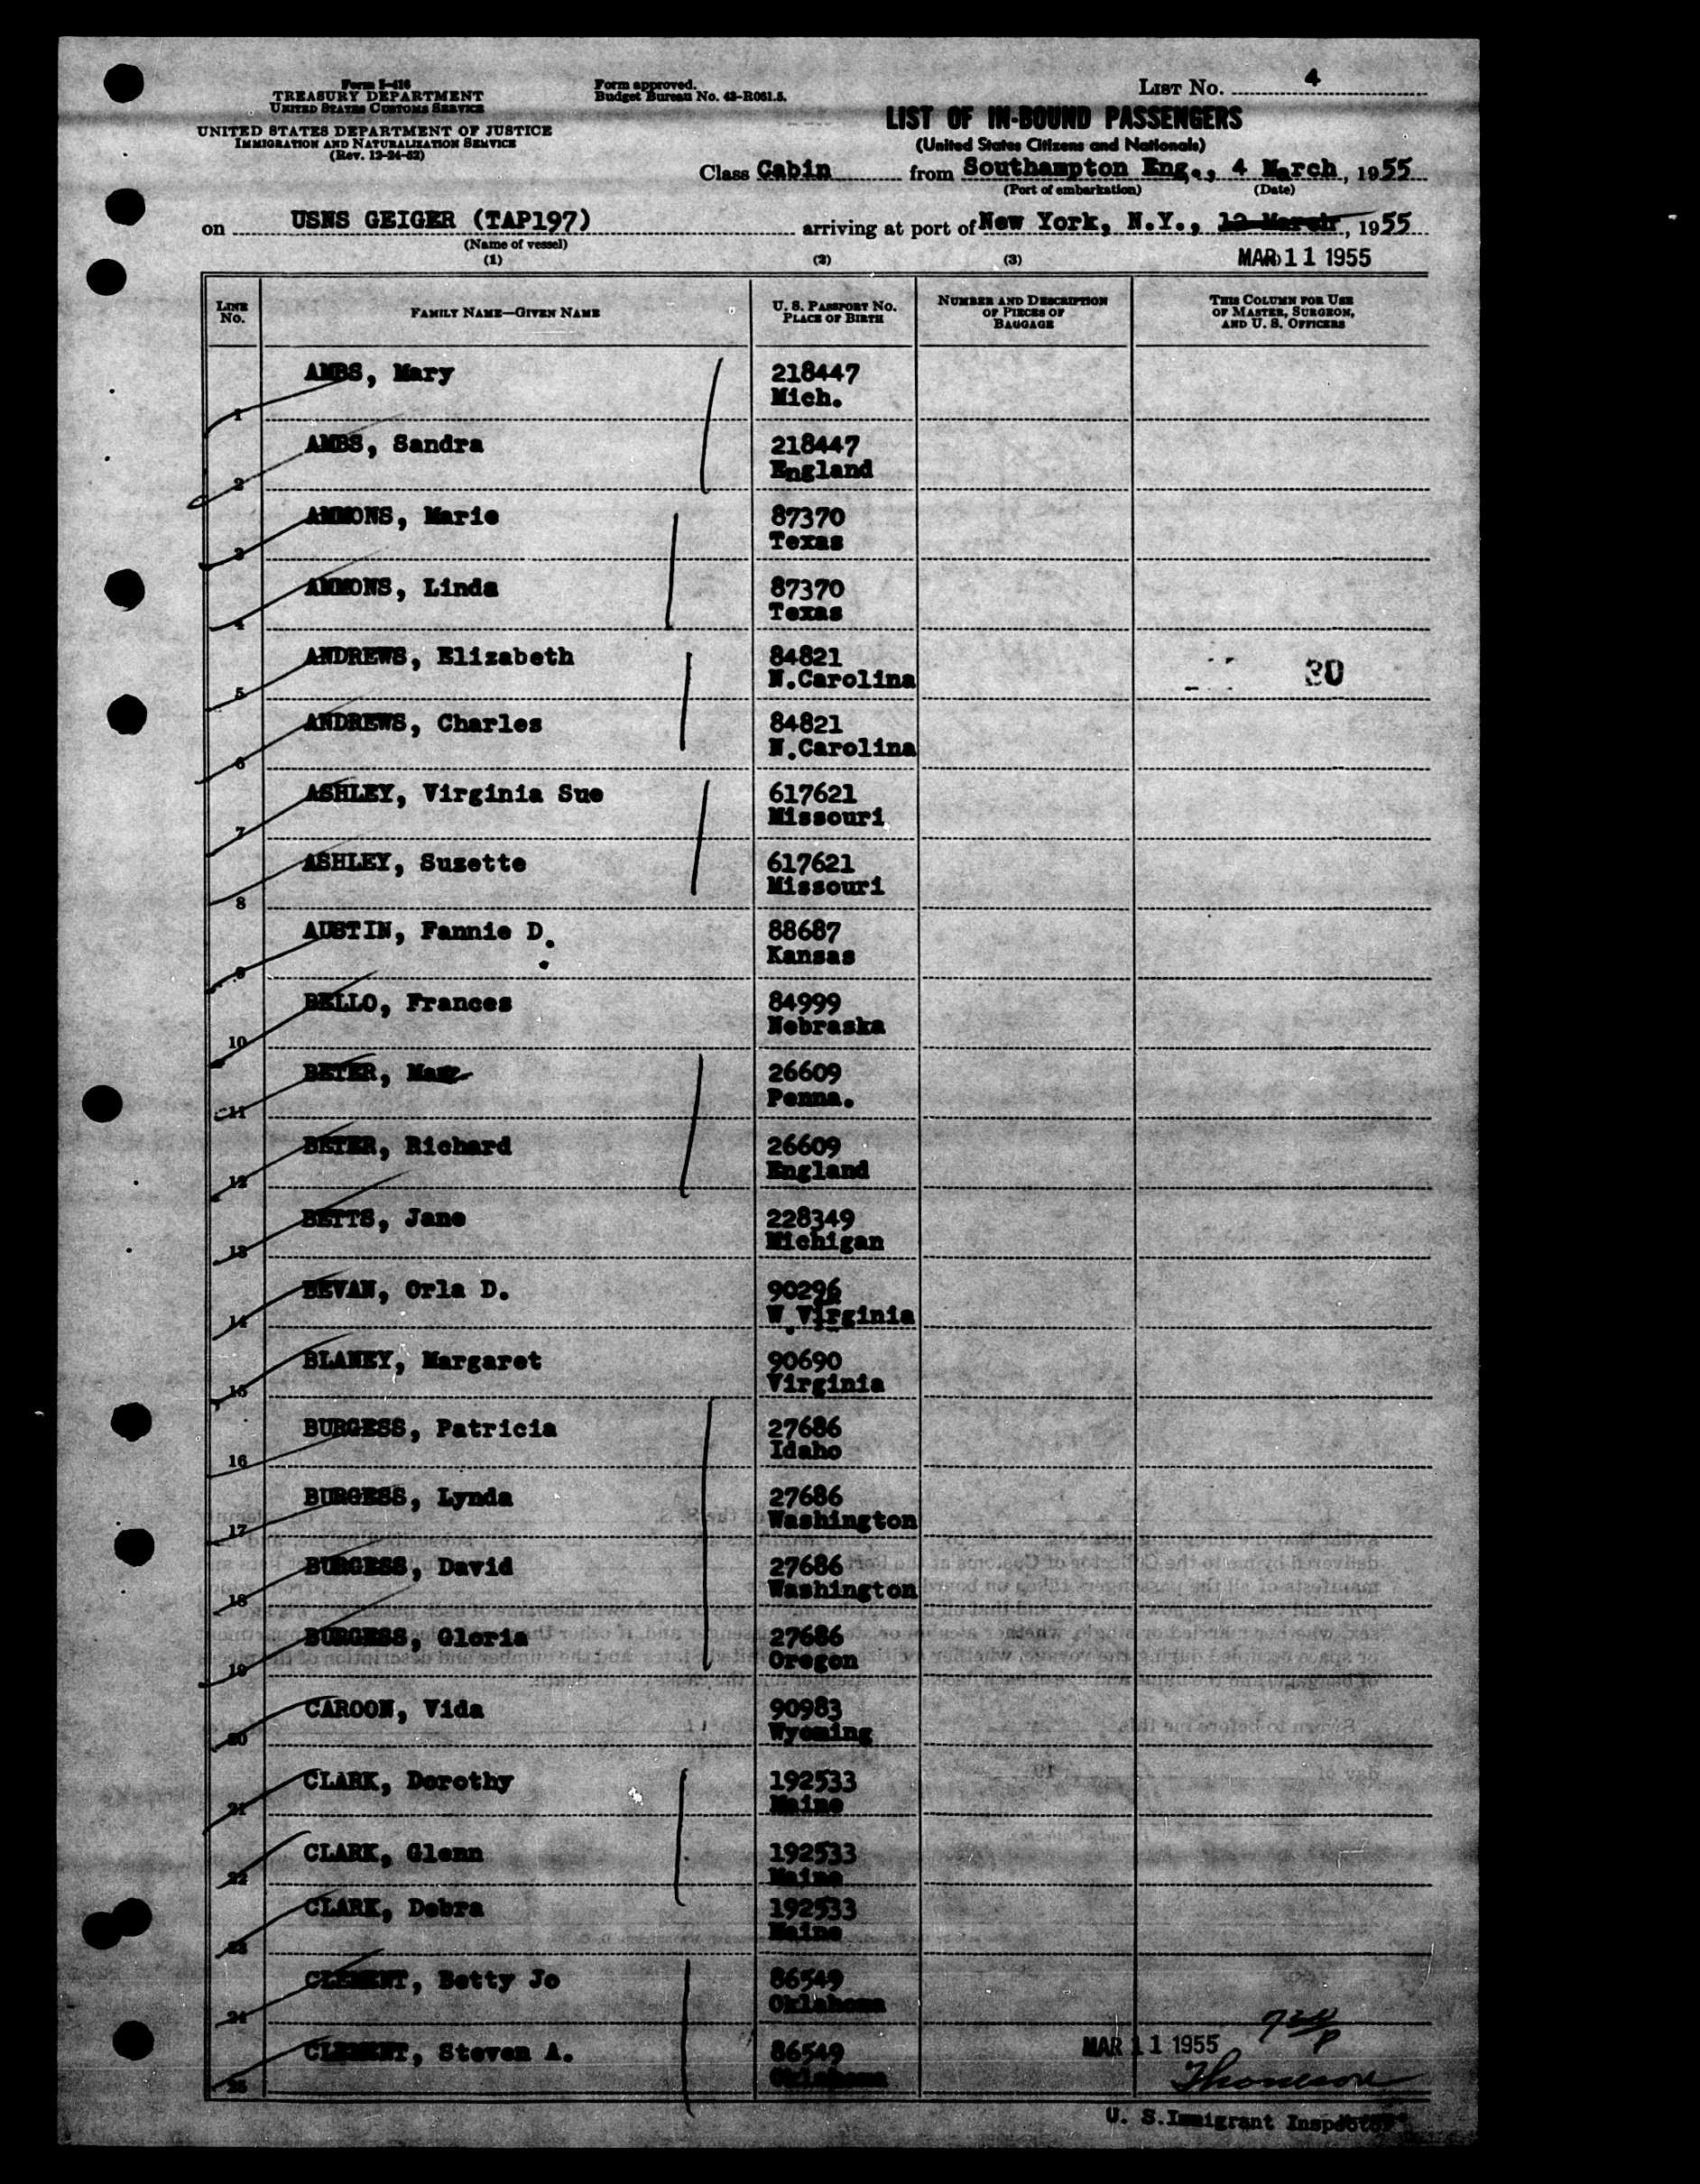 Form I-418
TREASURY DEPARTMENT
UNITED STATES CUSTOMS SERVICE
UNITED STATES DEPARTMENT OF JUSTICE
IMMIGRATION AND NATURALIZATION SERVICE
(Rev. 12-24-52)
Form approved.
Budget Bureau No. 43-R061.5.
LIST NO. 4
LIST OF IN-BOUND PASSENGERS
(United States Citizens and Nationals)
Class Cabin from Southampton Eng., 4 March, 1955
(Port of embarkation) (Date)
on USNS GEIGER (TAP197) arriving at port of New York, N.Y., 12 March, 1955
(Name of vessel)
MAR 11 1955
(1) (2) (3)
LINE NO. FAMILY NAME—GIVEN NAME U. S. PASSPORT NO. PLACE OF BIRTH NUMBER AND DESCRIPTION OF PIECES OF BAGGAGE THIS COLUMN FOR USE OF MASTER, SURGEON, AND U. S. OFFICERS
1 AMBS, Mary 218447
Mich.
2 AMBS, Sandra 218447
England
3 AMMONS, Marie 87370
Texas
4 AMMONS, Linda 87370
Texas
5 ANDREWS, Elizabeth 84821 30
N.Carolina
6 ANDREWS, Charles 84821
N.Carolina
7 ASHLEY, Virginia Sue 617621
Missouri
8 ASHLEY, Suzette 617621
Missouri
9 AUSTIN, Fannie D. 88687
Kansas
10 BELLO, Frances 84999
Nebraska
11 BETER, Mary 26609
Penna.
12 BETER, Richard 26609
England
13 BETTS, Jane 228349
Michigan
14 BEVAN, Orla D. 90296
W.Virginia
15 BLANEY, Margaret 90690
Virginia
16 BURGESS, Patricia 27686
Idaho
17 BURGESS, Lynda 27686
Washington
18 BURGESS, David 27686
Washington
19 BURGESS, Gloria 27686
Oregon
20 CAROON, Vida 90983
Wyoming
21 CLARK, Dorothy 192533
Maine
22 CLARK, Glenn 192533
Maine
23 CLARK, Debra 192533
Maine
24 CLEMENT, Betty Jo 86549
Oklahoma
25 CLEMENT, Steven A. 86549
Oklahoma
MAR 11 1955
U. S. Immigrant Inspector